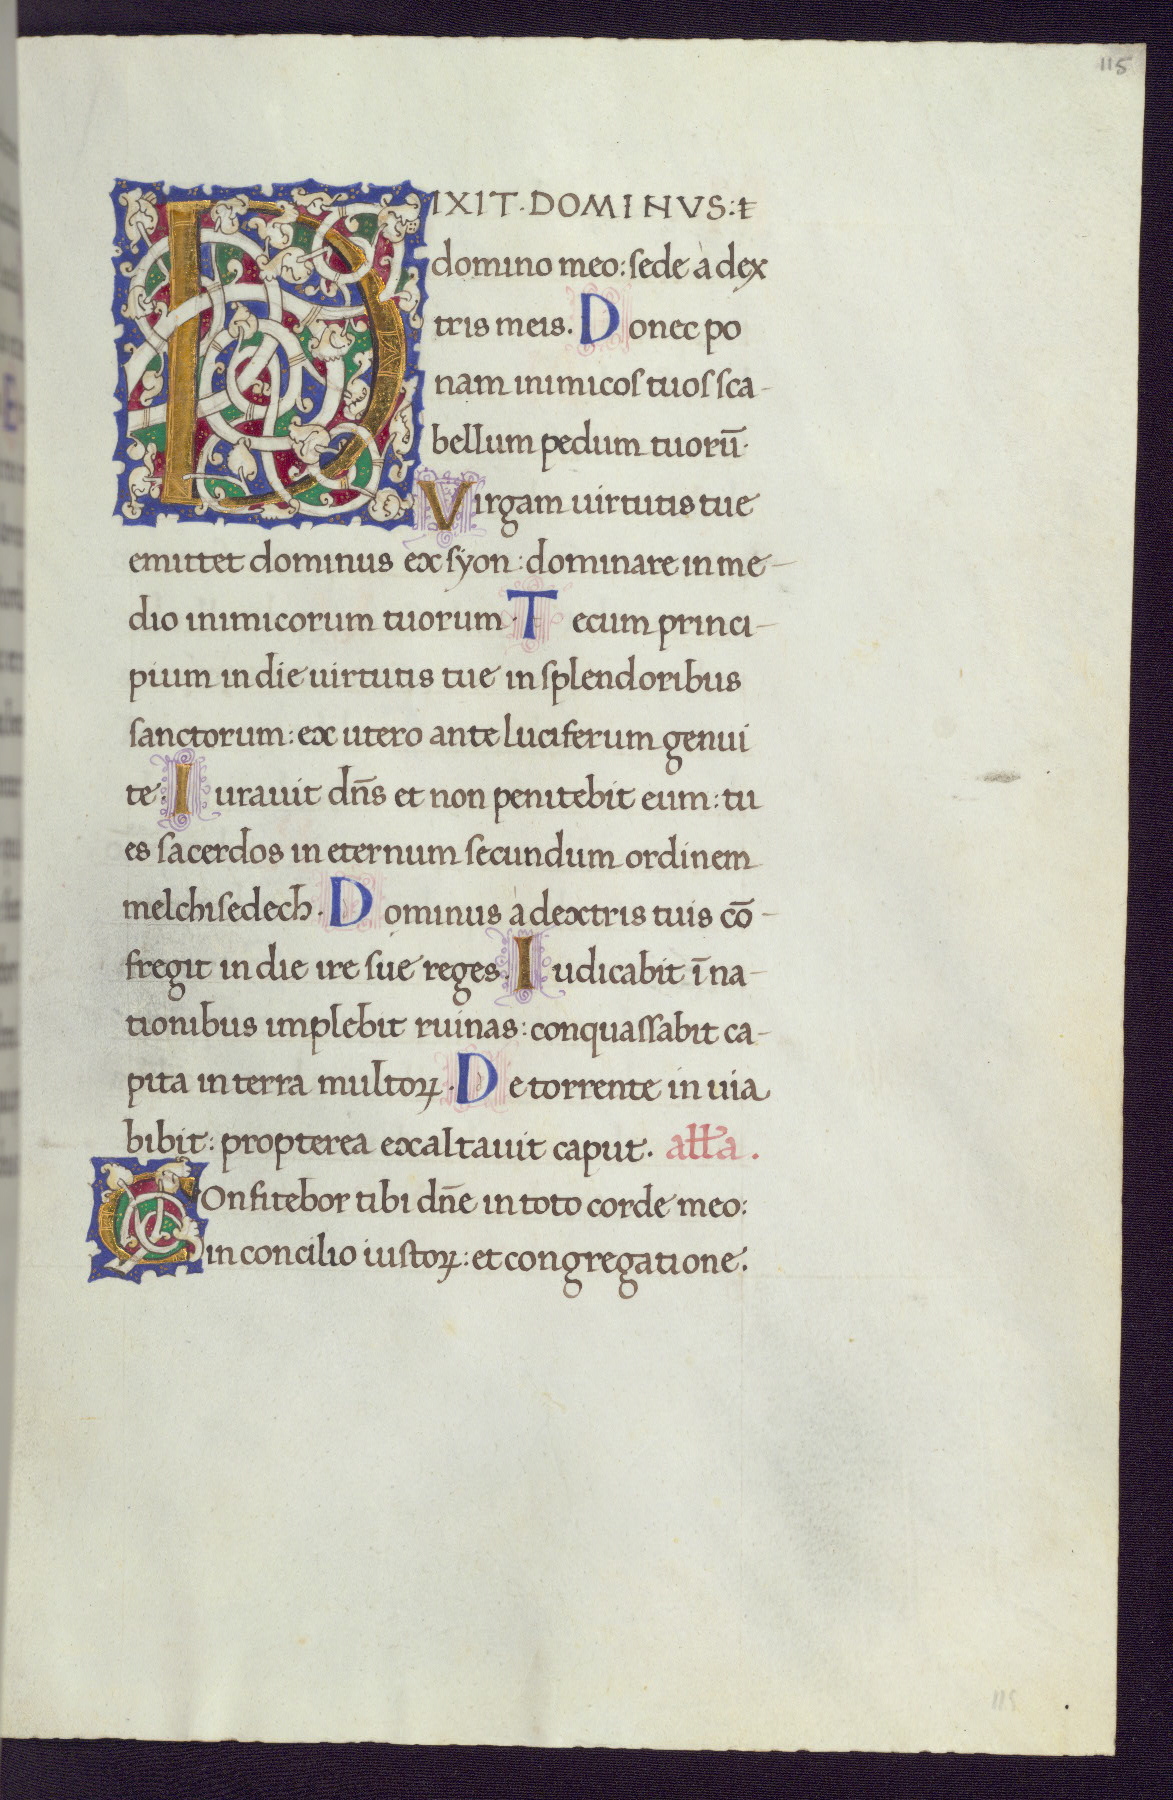 115
DIXIT·DOMINVS:
domino meo: sede à dex
tris meis. Donec po
nam inimicos tuos sca-
bellum pedum tuorū·
Virgam uirtutis tue
emittet dominus ex syon: dominare in me-
dio inimicorum tuorum· Tecum princi-
pium in die uirtutis tue in splendoribus
sanctorum: ex utero ante luciferum genui
te· Iurauit dn̄s et non penitebit eum: tu
es sacerdos in eternum secundum ordinem
melchisedech. Dominus à dextris tuis cō-
fregit in die ire sue reges. Iudicabit ī na-
tionibus implebit ruinas: conquassabit ca-
pita in terra multoꝝ. De torrente in uia
bibit: propterea exaltauit caput. aƚƚa.
COnfitebor tibi dn̄e in toto corde meo:
in concilio iustoꝝ: et congregatione.
115